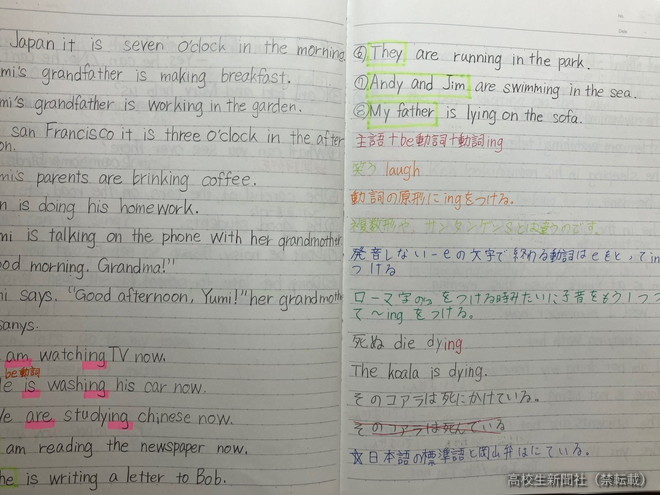 Japan it is seven o'clock in the morning
mi's grandfather is making breakfast.
mi's grandfather is working in the garden.
san Francisco it is three o'clock in the after
on.
mi's parents are brinking coffee.
n is doing his homework.
mi is talking on the phone with her grandmother
od morning. Grandma!"
i says. "Good afternoon, Yumi!" her grandmothe
sanys.
am watching TV now.
be動詞
e is washing his car now.
e are studying chinese now.
am reading the newspaper now.
he is writing a letter to Bob.
⑥ They are running in the park.
⑦ Andy and Jim are swimming in the sea.
⑧ My father is lying on the sofa.
主語+be動詞+動詞ing
笑う laugh
動詞の原形にingをつける。
複数形や、サンタンゲンSとは違うのです。
発音しない-eの文字で終わる動詞はeをとってin
つける
ローマ字のっをつける時みたいに子音をもう1つつ
て〜ingをつける。
死ぬ die dying
The koala is dying.
そのコアラは死にかけている。
そのコアラは死んでいる
日本語の標準語と岡山弁はにている。
高校生新聞社(禁転載)